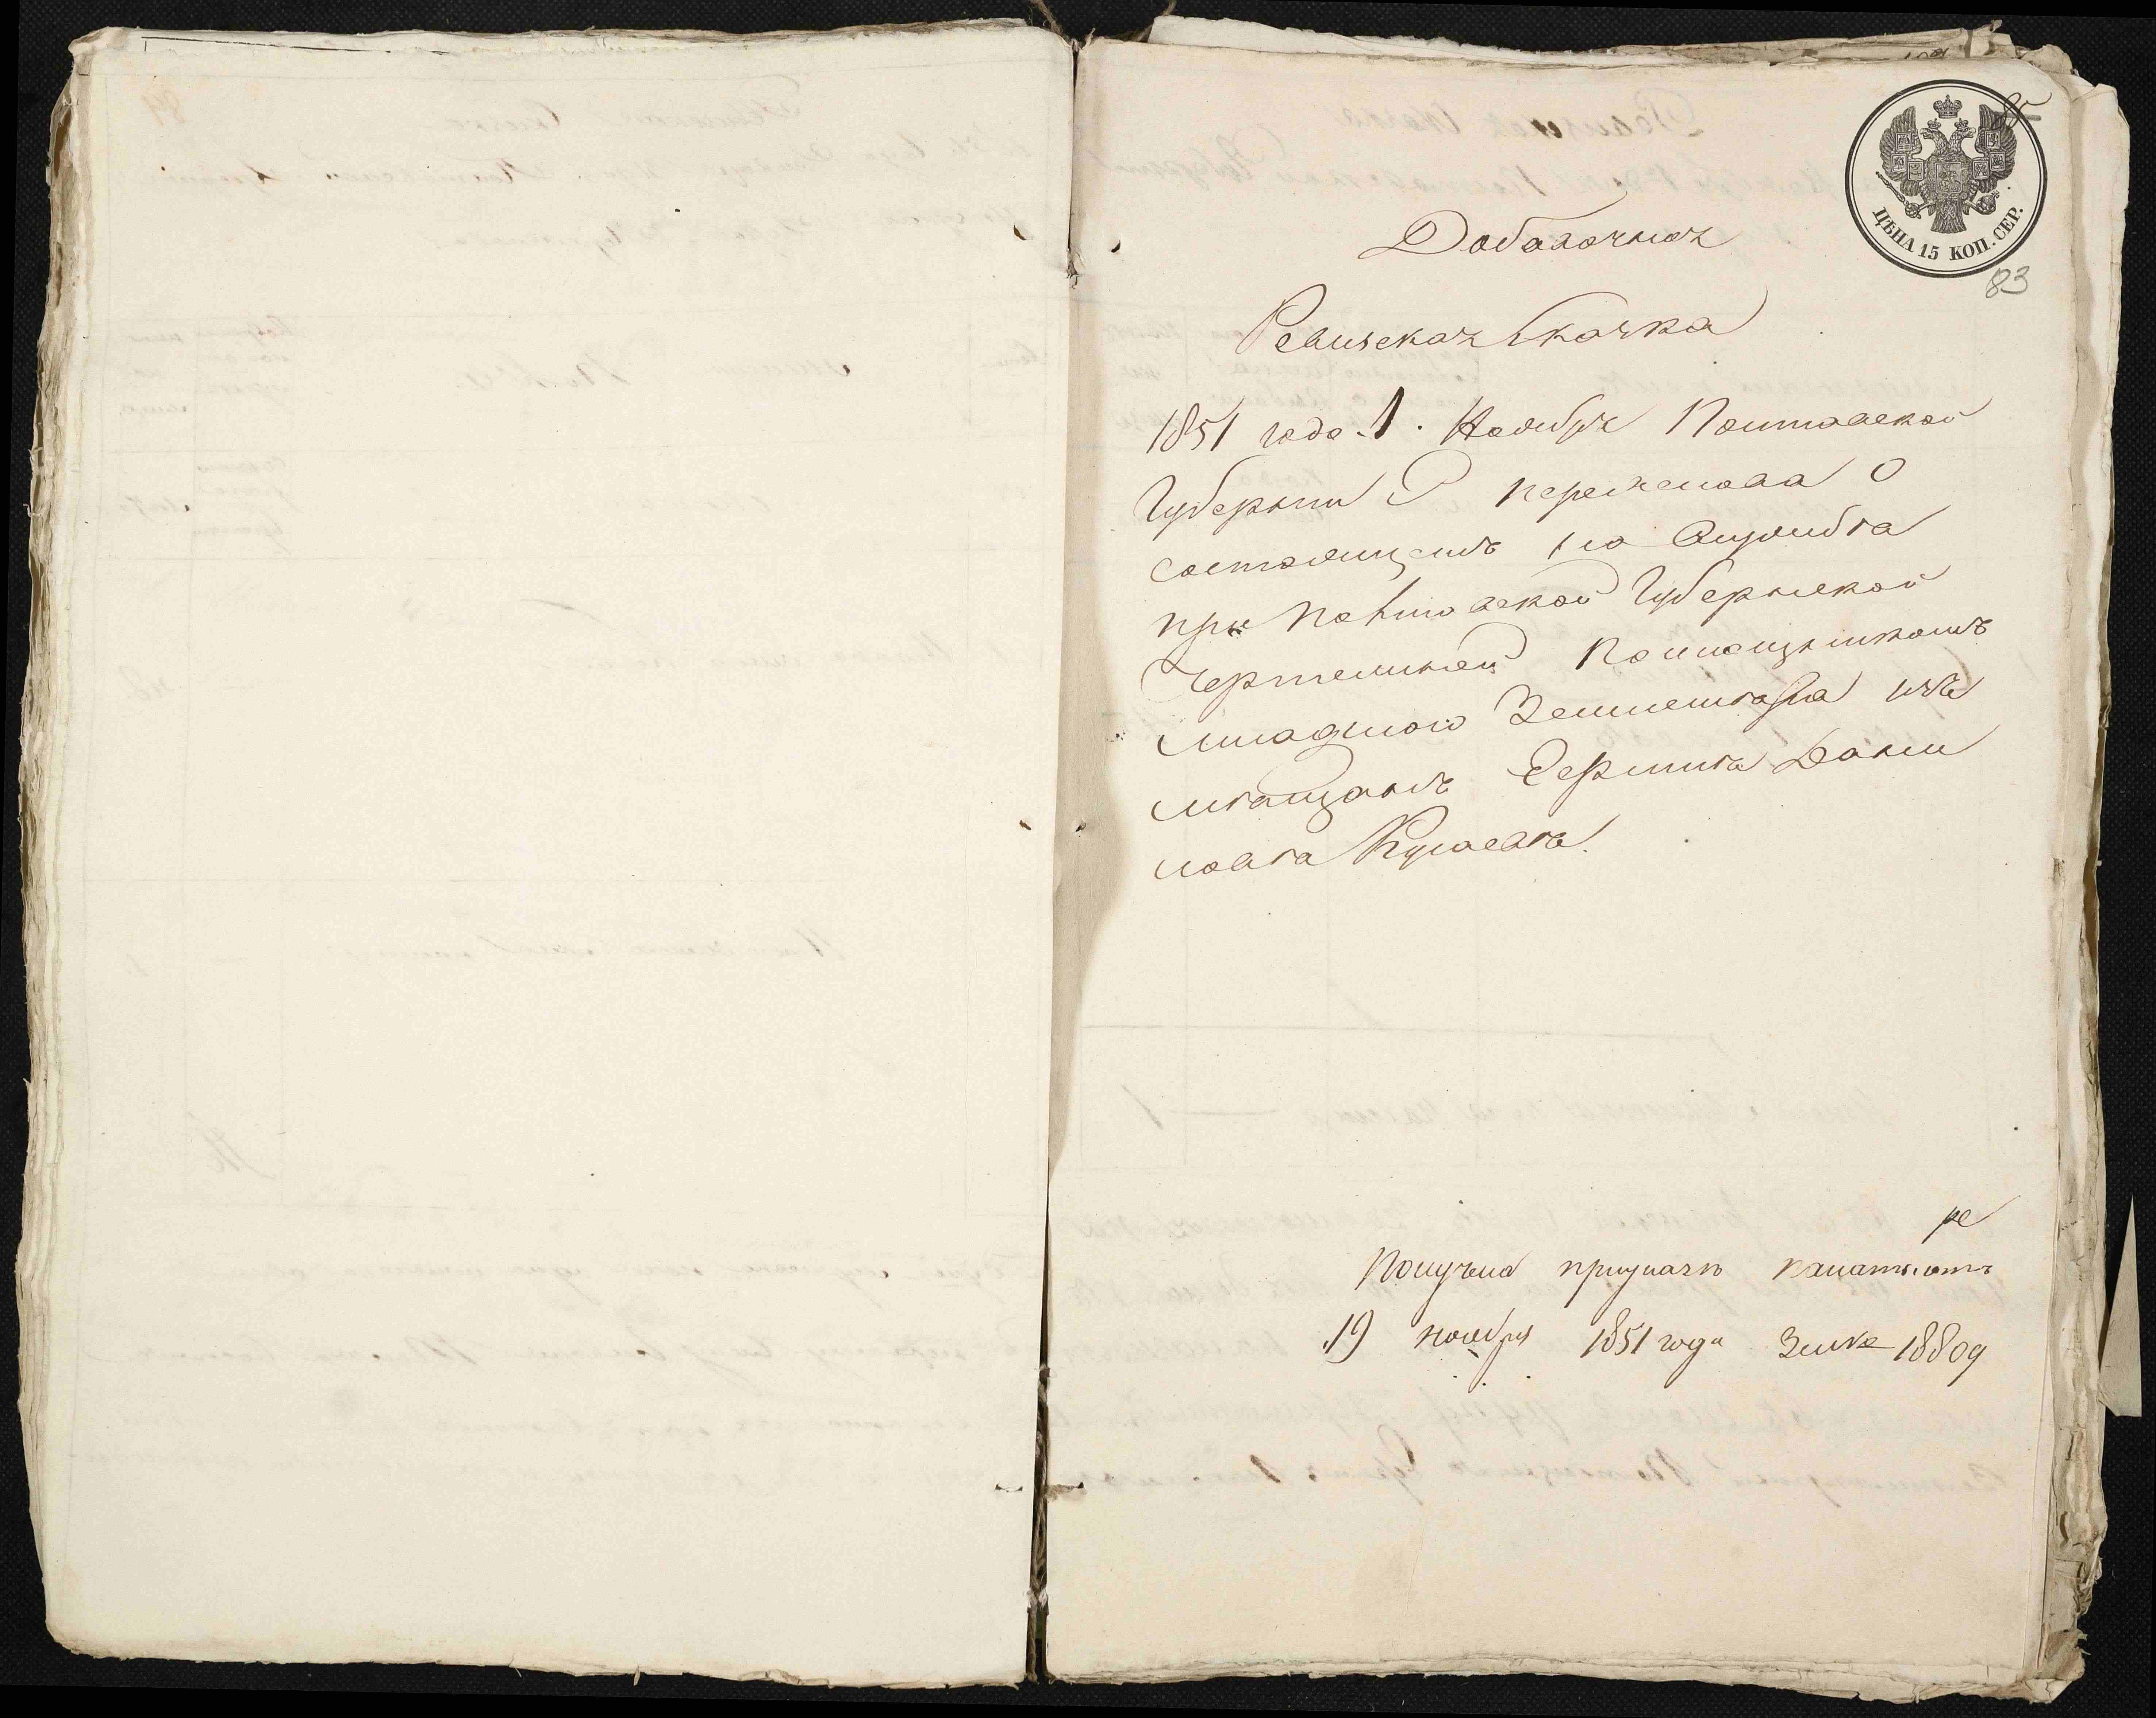 85
ЦѢНА 15 КОП. СЕР.
83
Добавочная
Ревизская Скаска
1851 года 1. Ноября Полтавской
Губернии Г Переяслова о
состоящемъ на службѣ
при Полтавской Губернской
Чертежной Помощникомъ
младшого Землемѣра изъ
мѣщанъ Данѣ
ловѣ
Получена при подачѣ
19 ноября 1851 года 18809